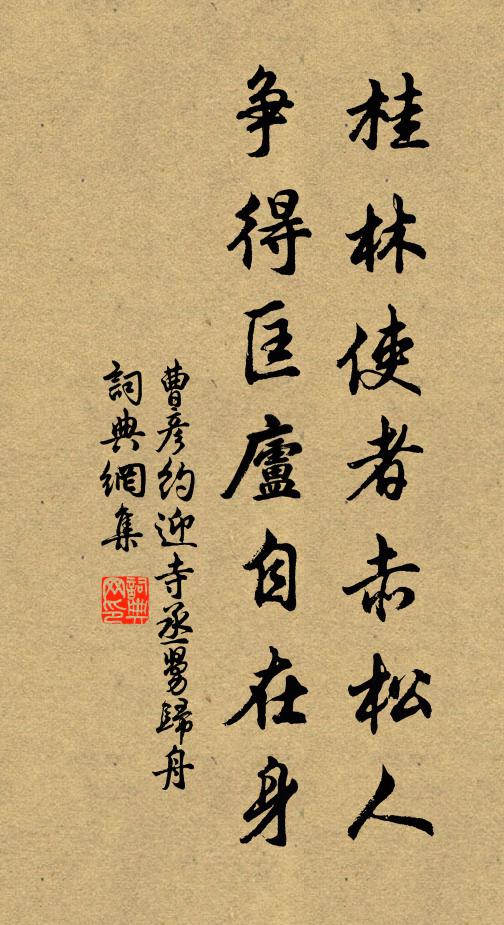 桂林使者赤松人
争得匡廬自在身
曹彦約迎寺丞舅歸舟
詞典網集
詞典网印